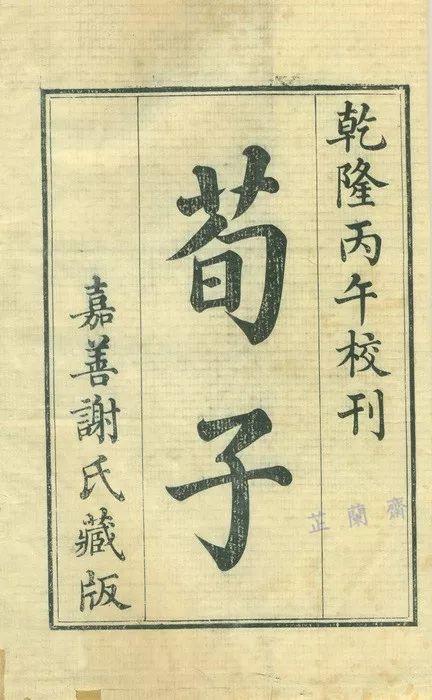 乾隆丙午校刊
荀子
嘉善謝氏藏版
芷蘭齋